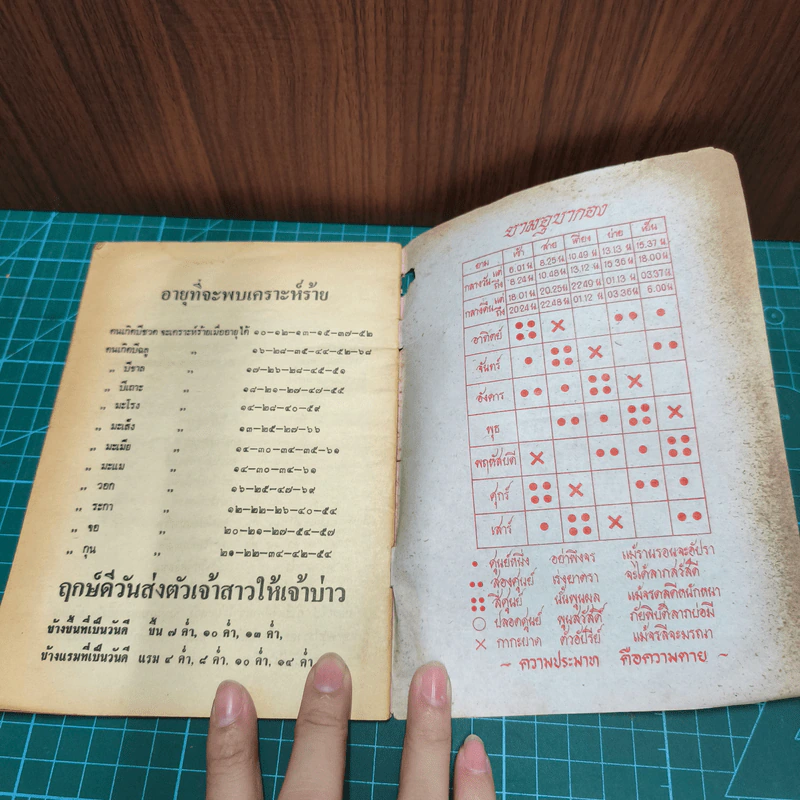 อายุที่จะพบเคราะห์ร้าย
คนเกิดปีชวด จะเคราะห์ร้ายเมื่ออายุได้ ๑๐–๑๒–๑๓–๑๕–๓๗–๕๒
คนเกิดปีฉลู ,, ๑๖–๒๘–๓๕–๔๔–๕๒–๖๘
,, ปีขาล ,, ๑๗–๒๖–๒๘–๔๕–๕๑
,, ปีเถาะ ,, ๑๘–๒๑–๒๗–๔๗–๕๕
,, มะโรง ,, ๑๔–๒๘–๔๐–๕๙
,, มะเส็ง ,, ๑๓–๒๕–๒๗–๖๖
,, มะเมีย ,, ๑๔–๓๐–๓๔–๓๕–๖๑
,, มะแม ,, ๑๔–๓๐–๓๔–๖๑
,, วอก ,, ๑๖–๒๕–๔๗–๖๙
,, ระกา ,, ๑๒–๒๒–๒๖–๔๐–๕๔
,, จอ ,, ๒๐–๒๑–๒๗–๕๔–๕๗
,, กุน ,, ๒๑–๒๒–๓๔–๔๒–๕๔
ฤกษ์ดีวันส่งตัวเจ้าสาวให้เจ้าบ่าว
ข้างขึ้นที่เป็นวันดี ขึ้น ๗ ค่ำ, ๑๐ ค่ำ, ๑๓ ค่ำ,
ข้างแรมที่เป็นวันดี แรม ๔ ค่ำ, ๘ ค่ำ, ๑๐ ค่ำ, ๑๔ ค่ำ
ยามอุบากอง
ยาม เช้า สาย เที่ยง บ่าย เย็น
กลางวัน แต่ 6.01 น 8.25 น 10.49 น 13.13 น 15.37 น
ถึง 8.24 น 10.48 น 13.12 น 15.36 น 18.00 น
กลางคืน แต่ 18.01 น 20.25 น 22.49 น 01.13 น 03.37 น
ถึง 20.24 น 22.48 น 01.12 น 03.36 น 6.00 น
อาทิตย์
จันทร์
อังคาร
พุธ
พฤหัสบดี
ศุกร์
เสาร์
ศูนย์หนึ่ง อย่าพึงจร แม้ราญรอนจะอัปรา
สองศูนย์ เร่งยาตรา จะได้ลาภสวัสดี
สี่ศูนย์ พูนผล
ปลอดศูนย์ พูนสวัสดิ์ ภัยพิบัติลาภบ่มี
กากะบาด ตัวอัปรีย์ แม้จรลีจะมรณา
~ ความประมาท คือความตาย ~